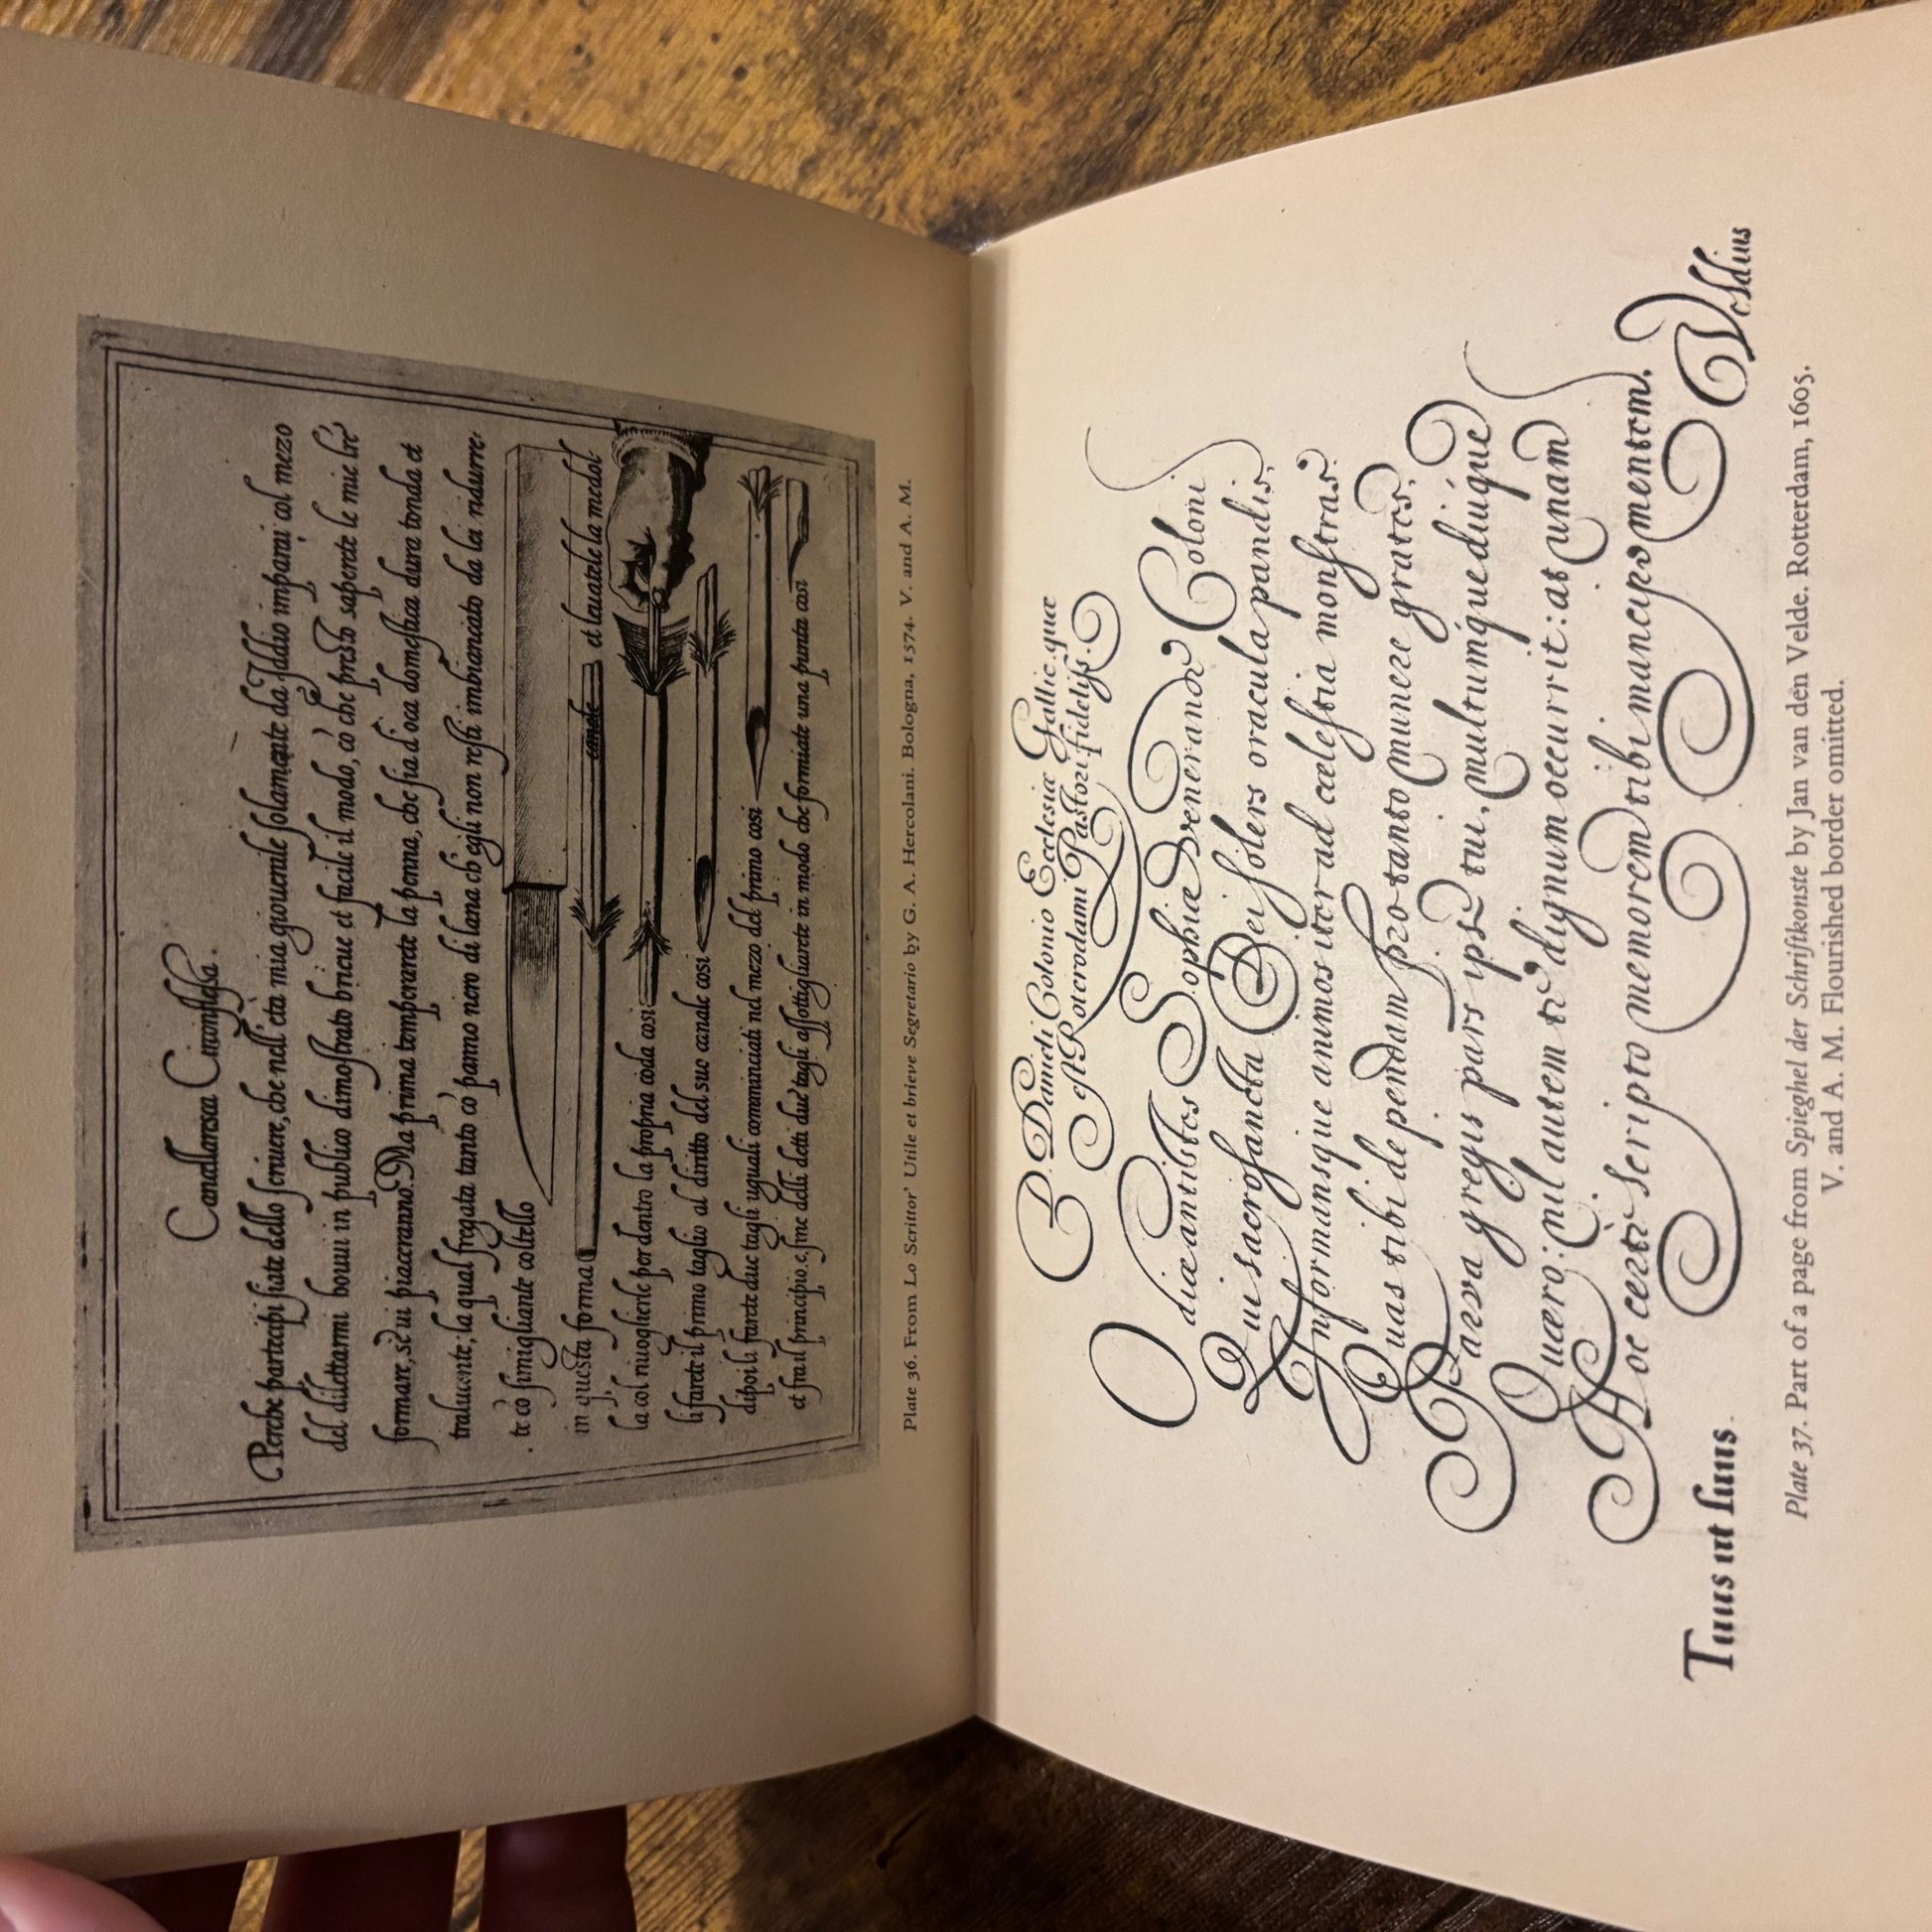 Cancellaresca Circonflessa.
Perche partecipi siate dello scriuere, che nell' età mia giouenile solamente da Iddio imparai col mezo
del dilettarmi houui in publico dimostrato brieue et facile il modo, cō che presto saperete le mie lr̄e
formare, sè ui piaceranno. Ma prima temperarete la penna, che sia d'oca domestica dura tonda et
tralucente; la qual fregata tanto cō panno nero di lana ch'egli non resti imbiancato da lei ridurre:
te cō simigliante coltello
in questa forma canale et leuatele la medol-
la col riuoglierle per dentro la propria coda cosi
li farete il primo taglio al diritto del suo canale cosi
dipoi li farete due tagli uguali cominciati nel mezo del primo cosi
et fra il principio, e fine delli detti due tagli assottigliarete in modo che formiate una punta cosi
Plate 36. From Lo Scrittor' Utile et brieve Segretario by G. A. Hercolani. Bologna, 1574. V. and A. M.
D. Danieli Colonio Ecclesiæ Gallic. quæ
est Roterodami Pastori fideliss.
O diæ antistes Sophiæ venerande Coloni
Qui sacrosancta Dei solers oracula pandis,
Informansque animos iter ad cælestia monstras.
Quas tibi dependam pro tanto munere grates,
Parva gregis pars ipse tui, multumque diuque
Quæro: nil autem te dignum occurrit: at unam
Hoc certe scripto memorem tibi mancipo mentem.
Tuus ut suus Veldius
Plate 37. Part of a page from Spieghel der Schriftkonste by Jan van den Velde. Rotterdam, 1605.
V. and A. M. Flourished border omitted.